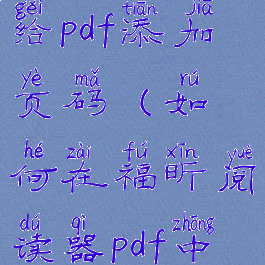 gěi tiān jiā
给pdf添加
yè mǎ rú
页码(如
hé zài fú xīn yuè
何在福昕阅
dú qì zhōng
读器pdf中